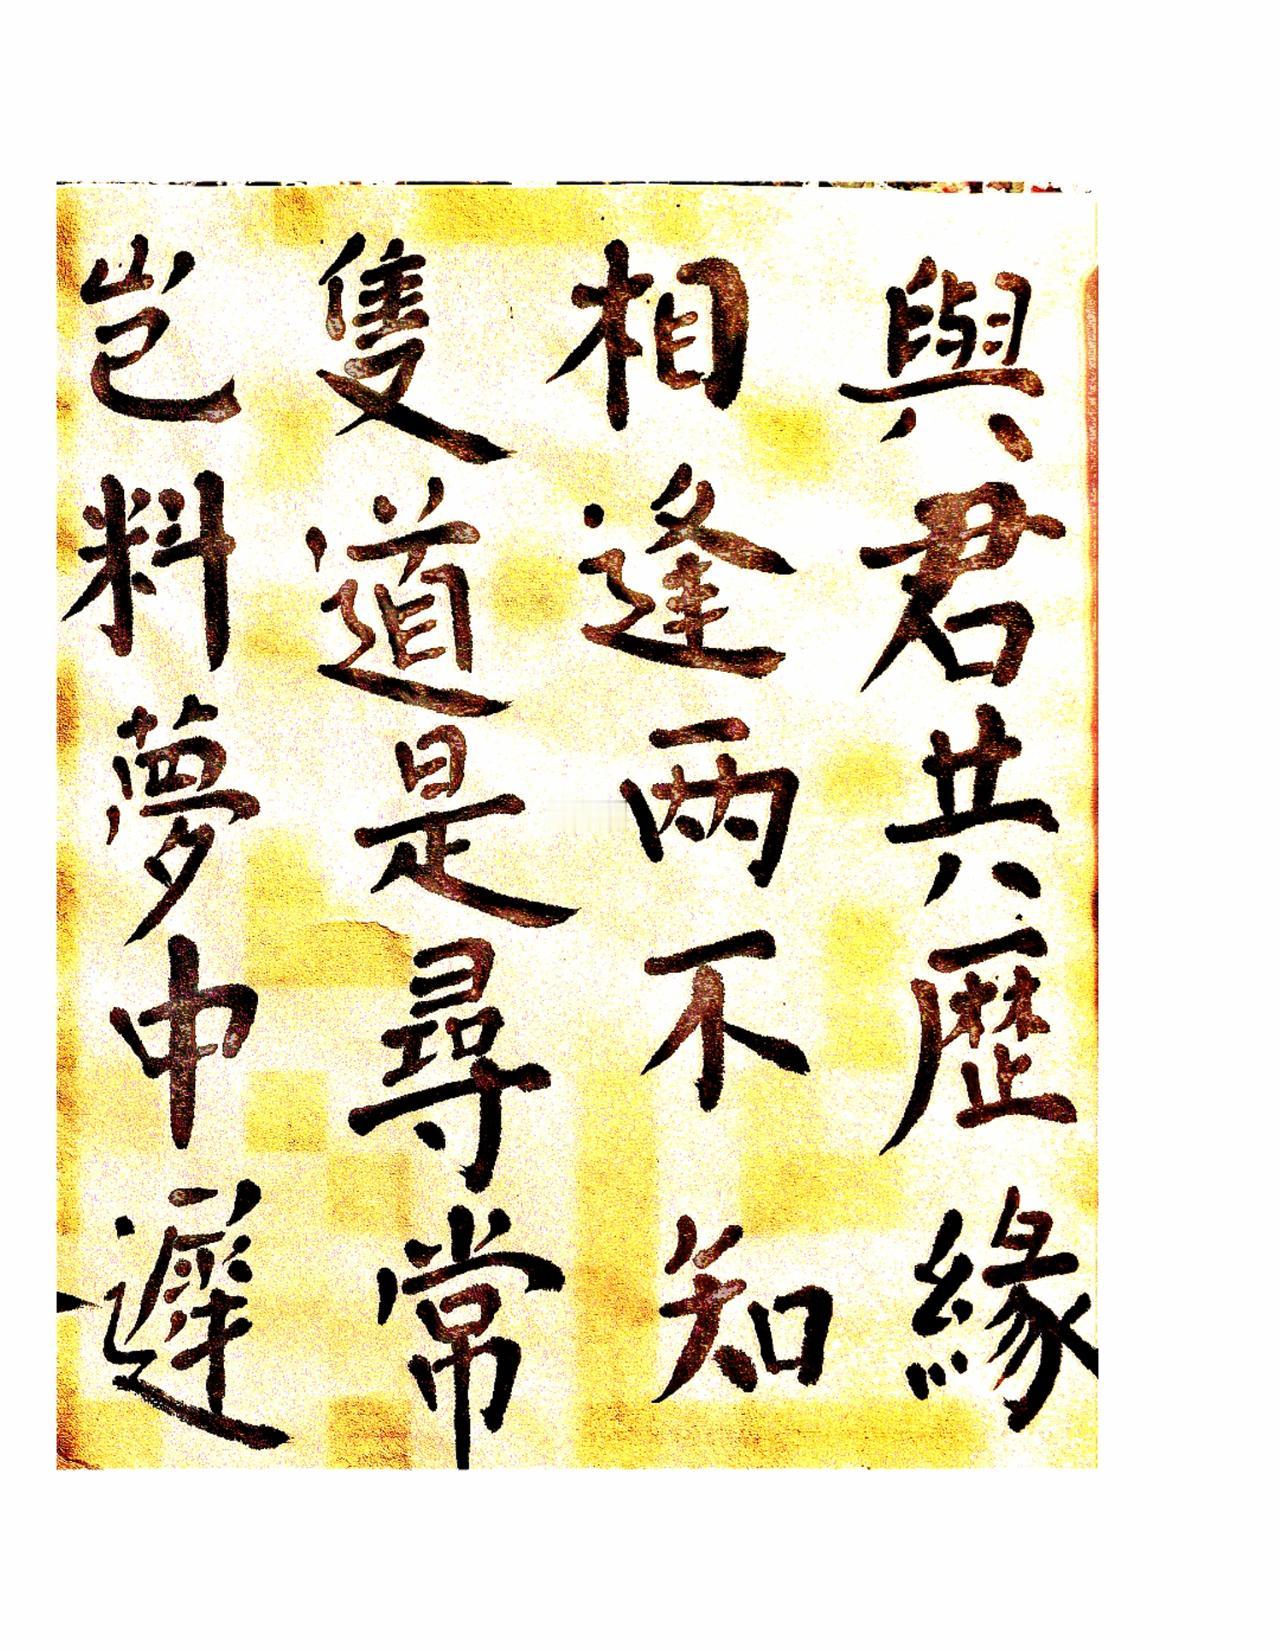 與君共歷緣
相逢兩不知
隻道是尋常
豈料夢中遲